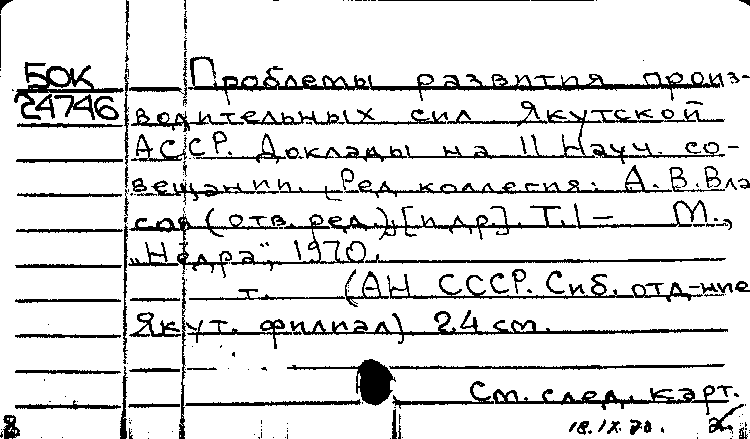 БОК
24746
Проблемы развития произ-
водительных сил Якутской
АССР. Доклады на II Науч. со-
вещании. [Ред. коллегия: А. В. Вла
сов (отв. ред.), [и др.]. Т. I – М.,
„Недра", 1970.
т. (АН СССР. Сиб. отд-ние
Якут. филиал) 24 см.
См. след. карт.
18.IX.70.